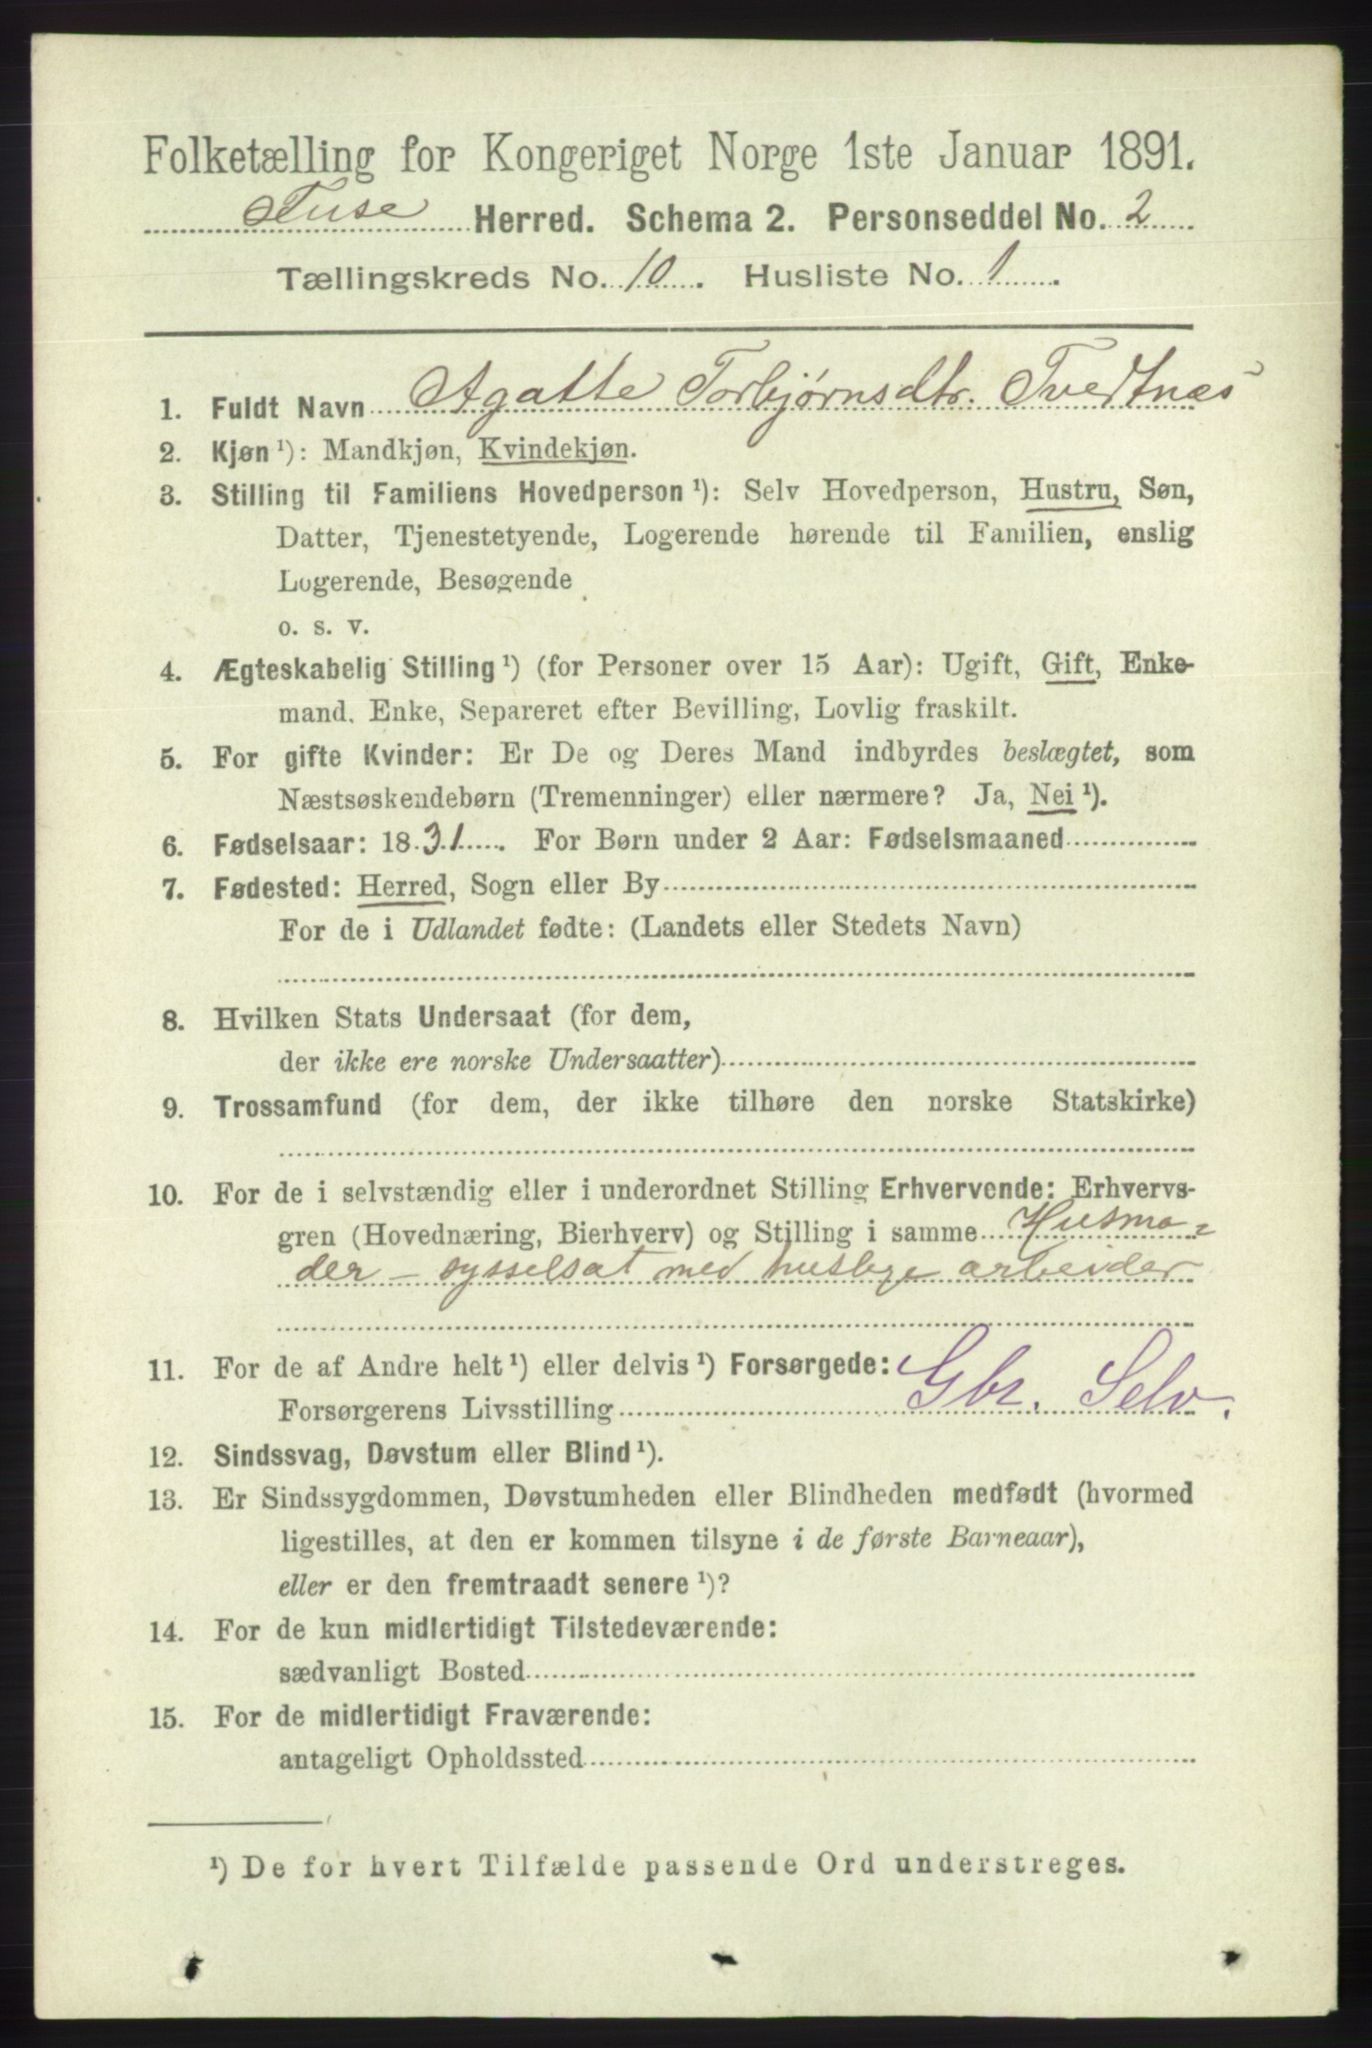 Folketælling for Kongeriget Norge 1ste Januar 1891.
Fuse Herred. Schema 2. Personseddel No. 2
Tællingskreds No. 10. Husliste No. 1.
1. Fuldt Navn Agatte Torbjørnsdtr. Tvedtnæs
2. Kjøn ¹): Mandkjøn, Kvindekjøn.
3. Stilling til Familiens Hovedperson ¹): Selv Hovedperson, Hustru, Søn,
Datter, Tjenestetyende, Logerende hørende til Familien, enslig
Logerende, Besøgende
o. s. v.
4. Ægteskabelig Stilling ¹) (for Personer over 15 Aar): Ugift, Gift, Enke-
mand, Enke, Separeret efter Bevilling, Lovlig fraskilt.
5. For gifte Kvinder: Er De og Deres Mand indbyrdes beslægtet, som
Næstsøskendebørn (Tremenninger) eller nærmere? Ja, Nei ¹).
6. Fødselsaar: 1831. For Børn under 2 Aar: Fødselsmaaned
7. Fødested: Herred, Sogn eller By
For de i Udlandet fødte: (Landets eller Stedets Navn)
8. Hvilken Stats Undersaat (for dem,
der ikke ere norske Undersaatter)
9. Trossamfund (for dem, der ikke tilhøre den norske Statskirke)
10. For de i selvstændig eller i underordnet Stilling Erhvervende: Erhvervs-
gren (Hovednæring, Bierhverv) og Stilling i samme Husmo-
der - sysselsat med huslige arbeider
11. For de af Andre helt ¹) eller delvis ¹) Forsørgede:
Forsørgerens Livsstilling Gbr. Selv.
12. Sindssvag, Døvstum eller Blind ¹).
13. Er Sindssygdommen, Døvstumheden eller Blindheden medfødt (hvormed
ligestilles, at den er kommen tilsyne i de første Barneaar),
eller er den fremtraadt senere ¹)?
14. For de kun midlertidigt Tilstedeværende:
sædvanligt Bosted
15. For de midlertidigt Fraværende:
antageligt Opholdssted
¹) De for hvert Tilfælde passende Ord understreges.